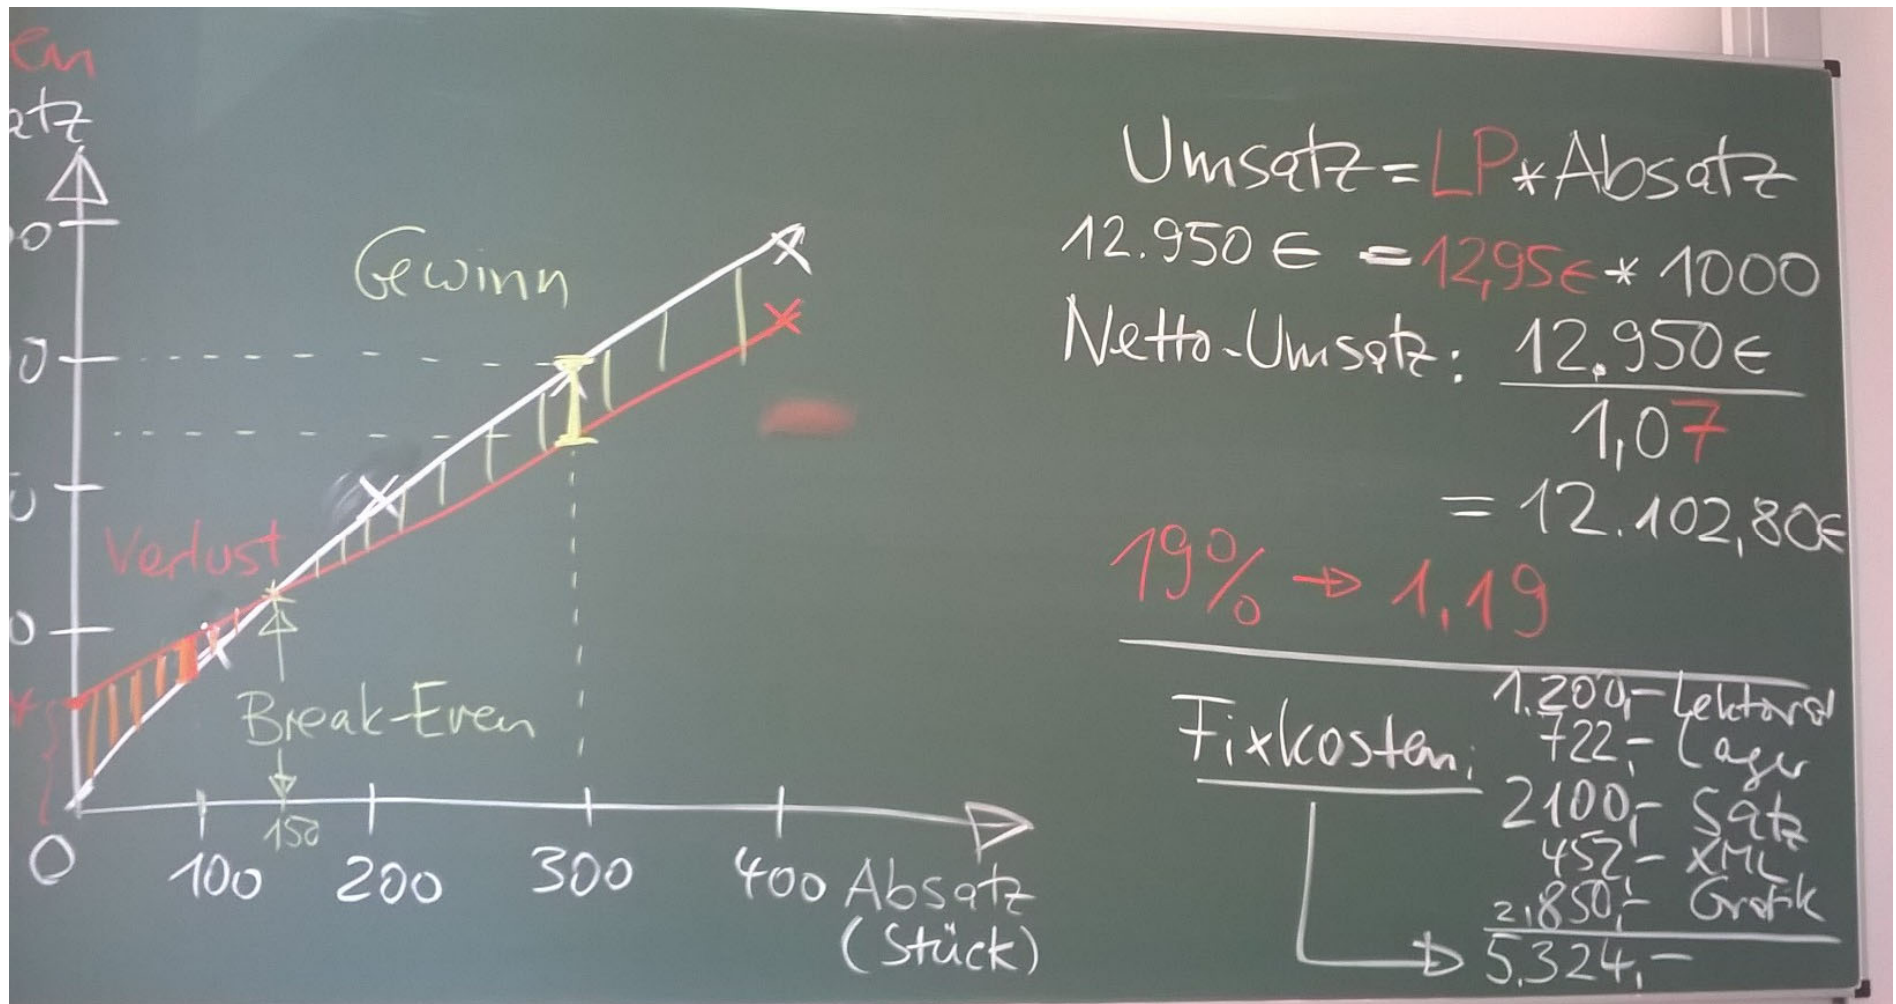 en
atz
0
Gewinn
0
0
Verlust
0
Break-Even
150
0 100 200 300 400 Absatz
(Stück)
Umsatz = LP * Absatz
12.950 € = 12,95€ * 1000
Netto-Umsatz: 12.950€
1,07
= 12.102,80€
19% → 1,19
Fixkosten:
1.200,- Lektorat
722,- Lager
2100,- Satz
452,- XML
2,850,- Grafik
5.324,-